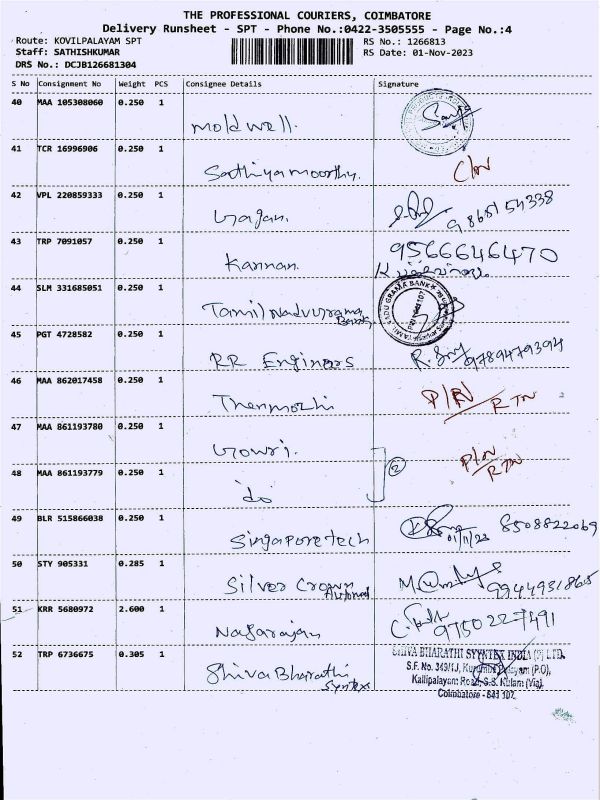 THE PROFESSIONAL COURIERS, COIMBATORE
Delivery Runsheet - SPT - Phone No.:0422-3505555 - Page No.:4
Route: KOVILPALAYAM SPT
Staff: SATHISHKUMAR
DRS No.: DCJB126681304
RS No.: 1266813
RS Date: 01-Nov-2023
S No Consignment No Weight PCS Consignee Details Signature
40 MAA 105308060 0.250 1 moldwell.
41 TCR 16996906 0.250 1 Sathiyamoorthy. C/N
42 VPL 220859333 0.250 1 98651 54338
43 TRP 7091057 0.250 1 Kannan. 9566646470
44 SLM 331685051 0.250 1 Tamil Nadu Grama Bank
TAMIL NADU GRAMA BANK
45 PGT 4728582 0.250 1 RR Engineers 9789479394
46 MAA 862017458 0.250 1 Thenmozhi P/N RTN
47 MAA 861193780 0.250 1 Gowri. P/N RTN
48 MAA 861193779 0.250 1 do 2
49 BLR 515866038 0.250 1 Singapore tech 01/11/23 8508822069
50 STY 905331 0.285 1 Silver Crown 9944931865
51 KRR 5680972 2.600 1 Nagarajan 9750227491
52 TRP 6736675 0.305 1 Shiva Bharathi Syntex
SHIVA BHARATHI SYYNTEX INDIA (P) LTD.
S.F. No. 349/1J, Kurumba Palayam (P.O),
Kallipalayam Road, S.S. Kulam (Via),
Coimbatore - 641 107.